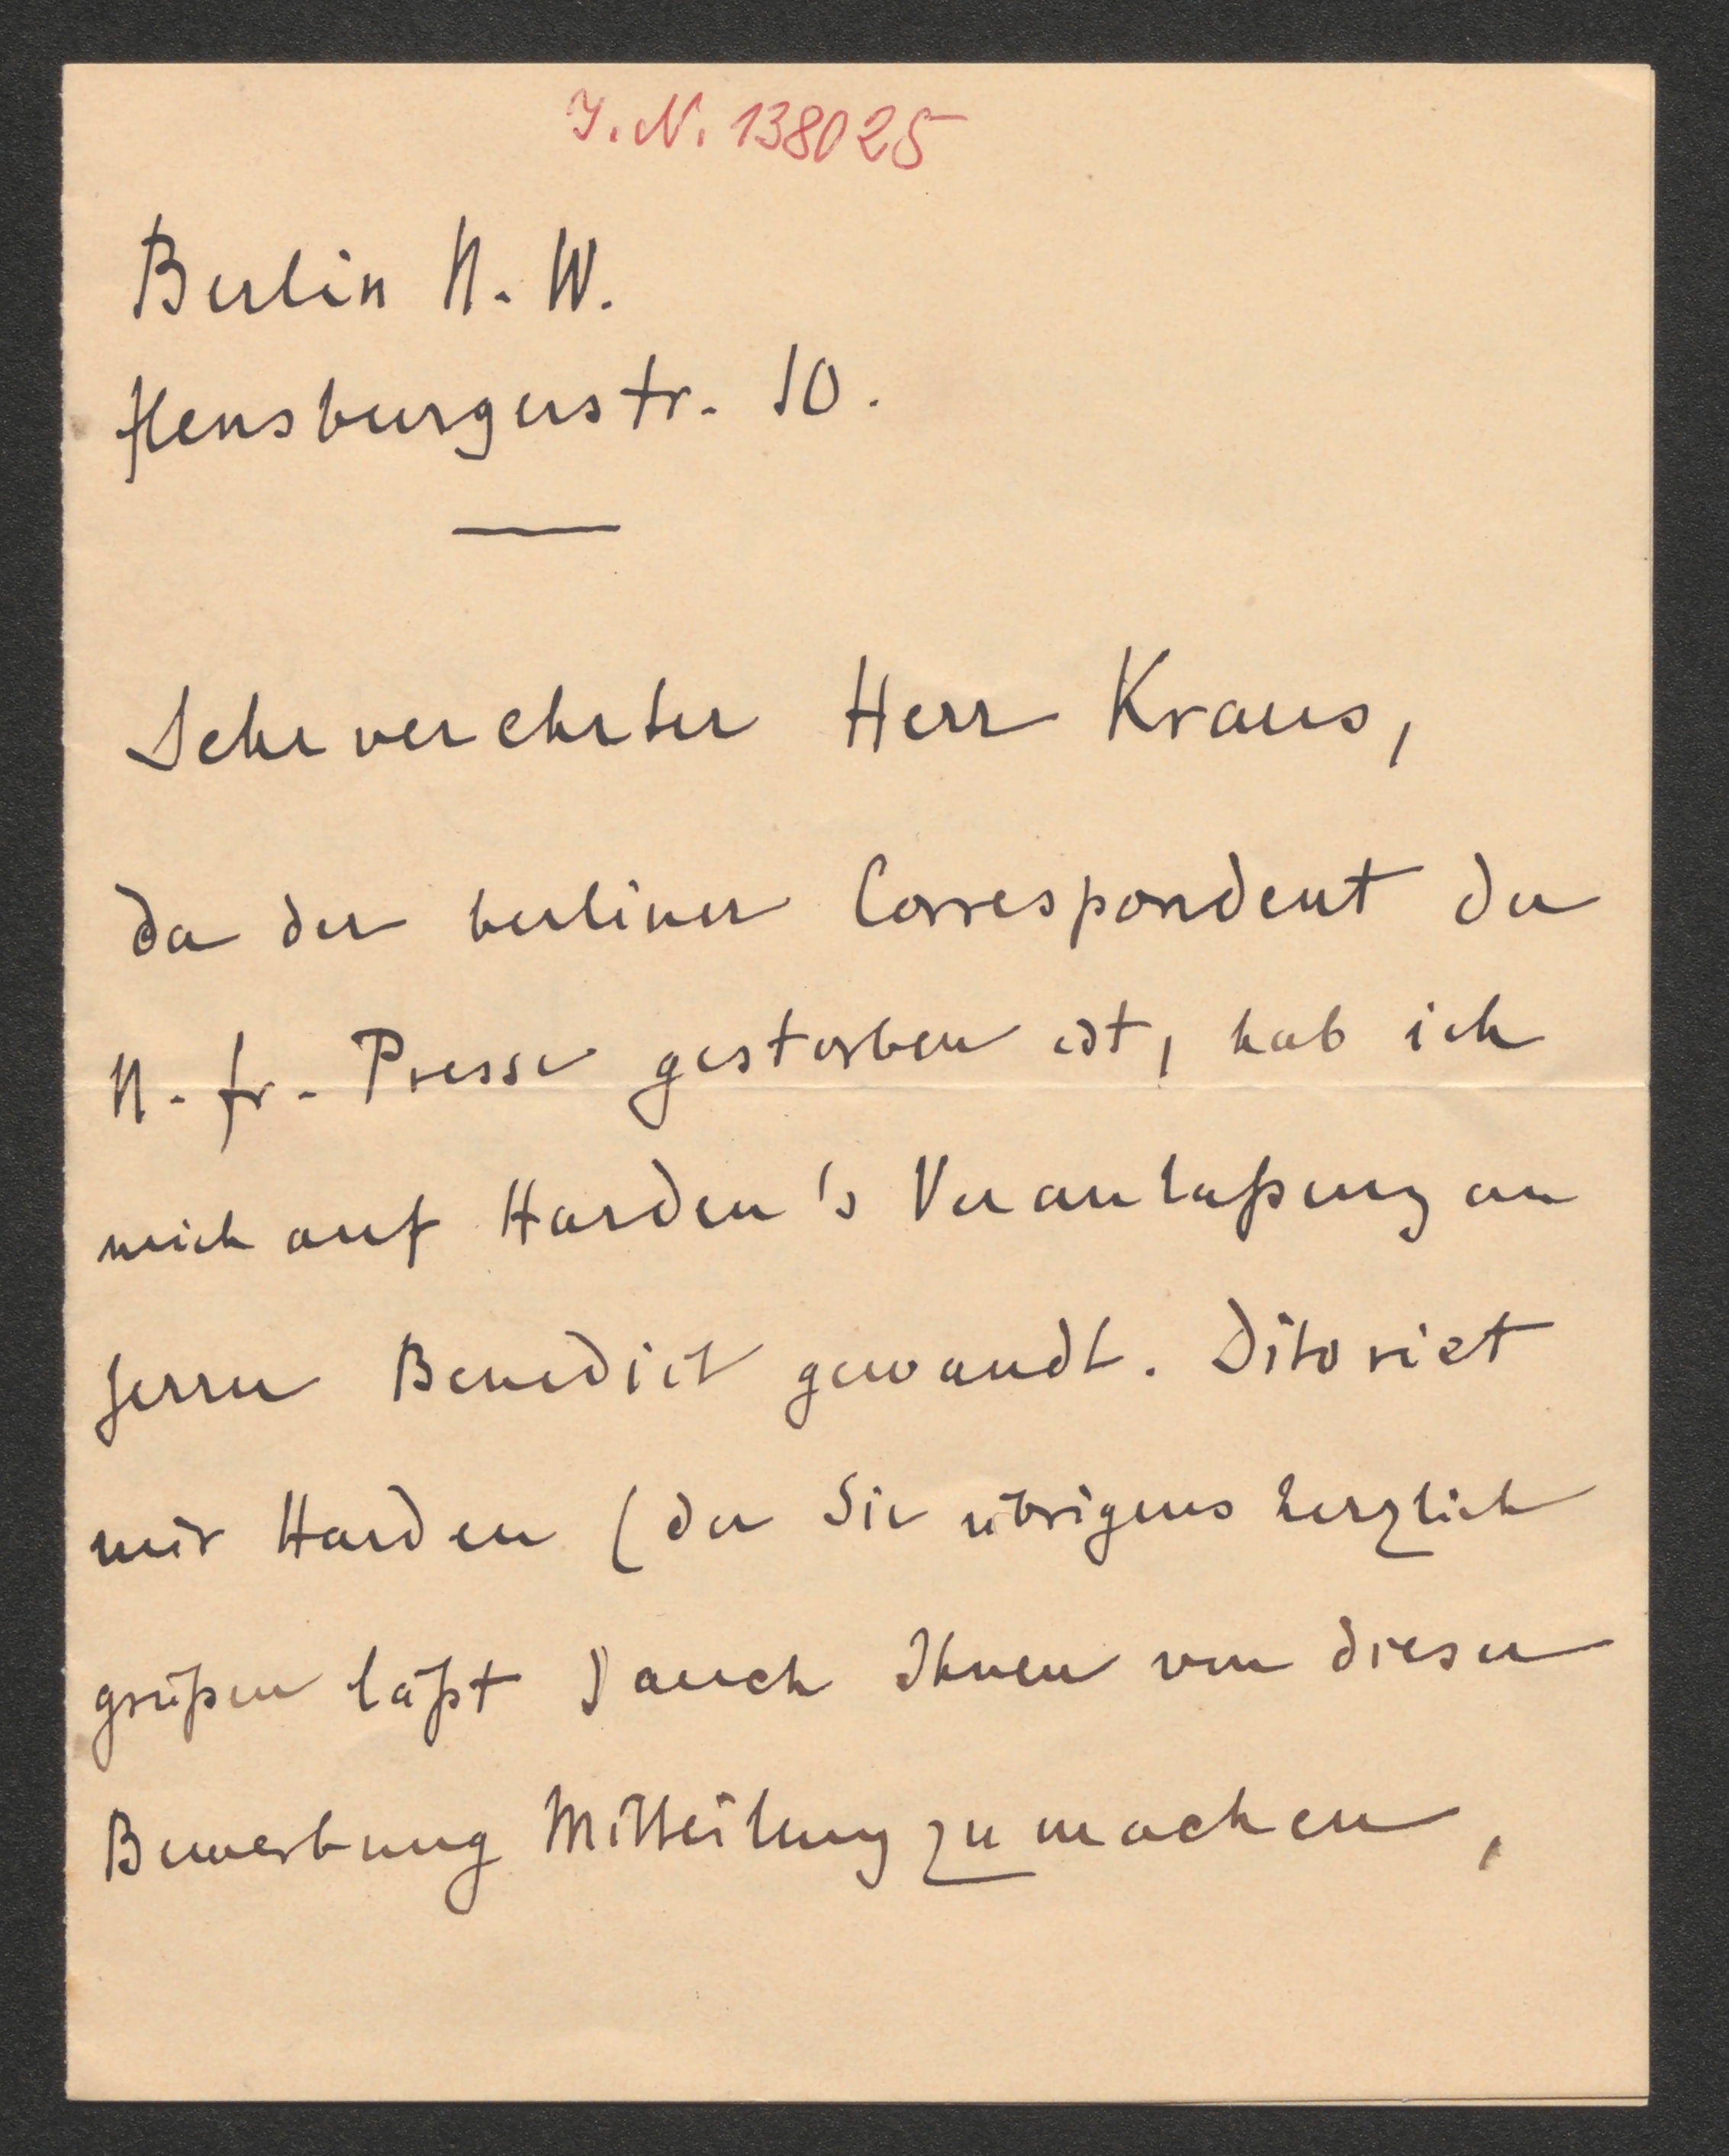 J. N. 138025
Berlin N. W.
flensburgerstr. 10.
Sehr verehrter Herr Kraus,
da der berliner Correspondent der
N. fr. Presse gestorben ist, hab ich
mich auf Harden's Veranlaßung an
Herrn Benedict gewandt. Dito riet
mir Harden (der Sie übrigens herzlich
grüßen läßt) auch Ihnen von dieser
Bewerbung Mitteilung zu machen,